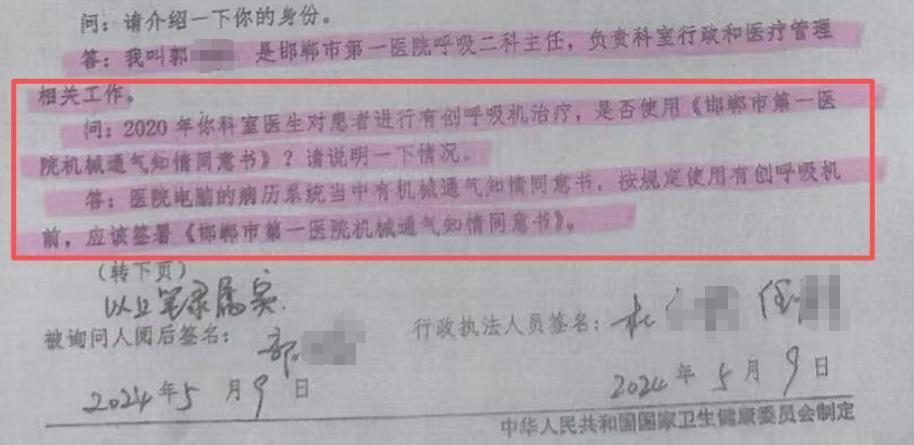 问：请介绍一下你的身份。
答：我叫郭 是邯郸市第一医院呼吸二科主任，负责科室行政和医疗管理
相关工作。
问：2020年你科室医生对患者进行有创呼吸机治疗，是否使用《邯郸市第一医
院机械通气知情同意书》？请说明一下情况。
答：医院电脑的病历系统当中有机械通气知情同意书，按规定使用有创呼吸机
前，应该签署《邯郸市第一医院机械通气知情同意书》。
（转下页）
以上笔录属实.
被询问人阅后签名： 郭 行政执法人员签名： 杜
2024年5月9日 2024年5月9日
中华人民共和国国家卫生健康委员会制定